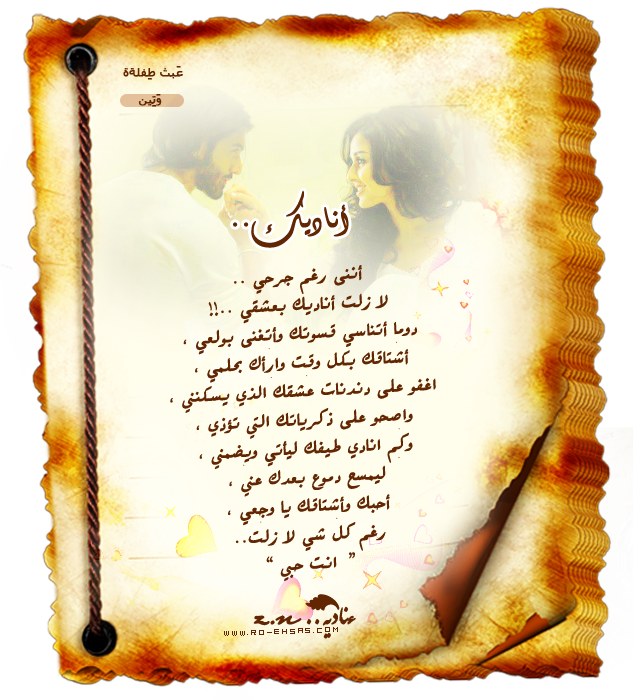 عَبث طِفلةة
وَتين
أناديك..
أننى رغم جرحي ..
لا زلت أناديك بعشقي ..!!
دوما أتناسي قسوتك وأتغنى بولعي ،
أشتاقك بكل وقت وارأك بحلمي ،
اغفو على دندنات عشقك الذي يسكنني ،
واصحو على ذكرياتك التي تؤذي ،
وكم انادي طيفك ليأتي ويضمني ،
ليمسع دموع بعدك عني ،
أحبك وأشتاقك يا وجعي ،
رغم كل شي لا زلت..
” انت حبي “
عناديه..
www.RO-EHSAS.COM